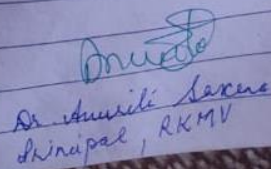 Dr. Anurili Saxena
Principal, RKMV